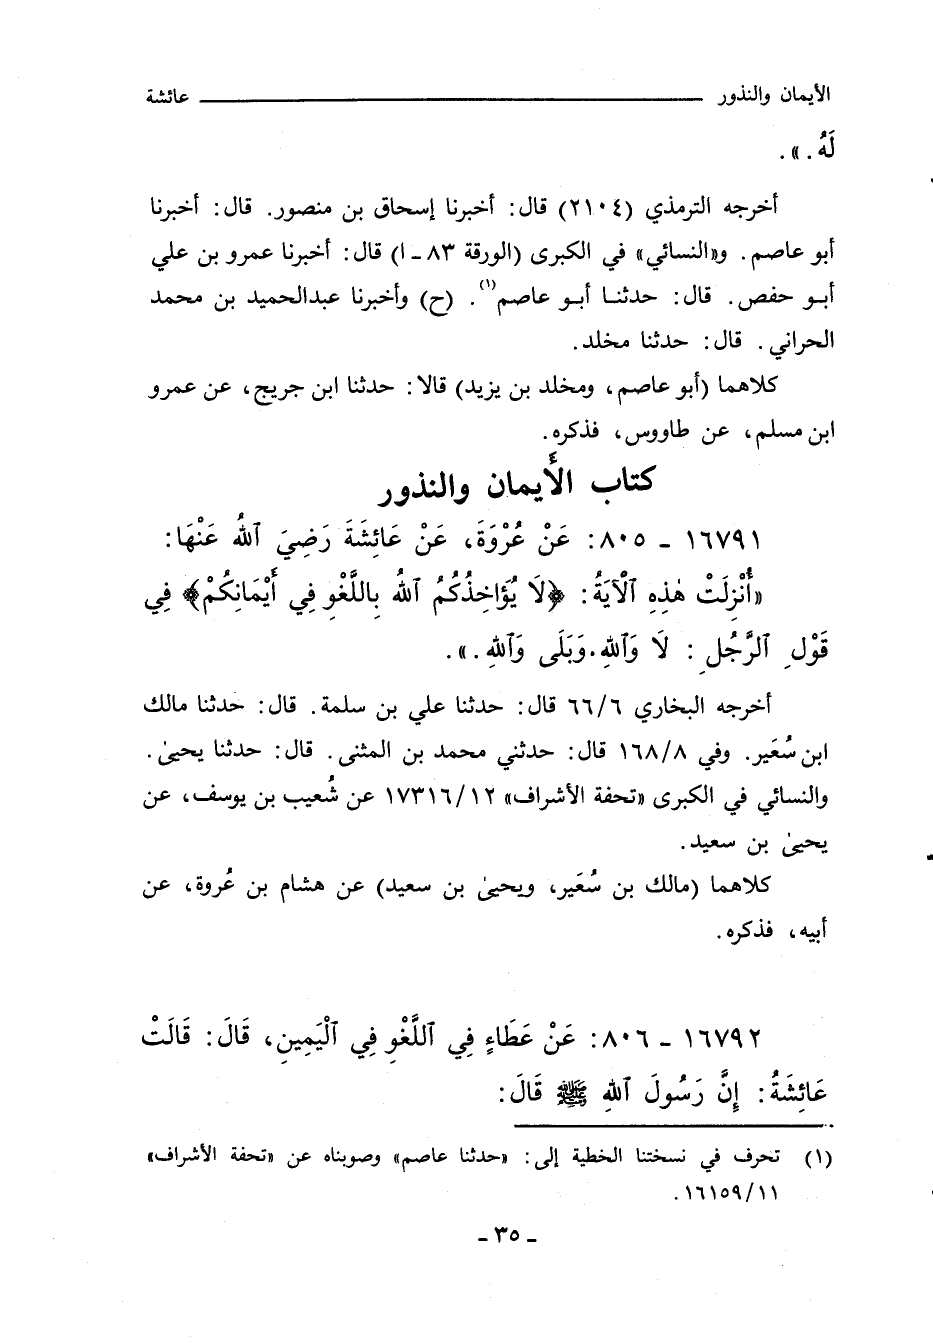 الأيمان والنذور ــــــــــ عائشة
لَهُ . » .
أخرجه الترمذي (٢١٠٤) قال : أخبرنا إسحاق بن منصور. قال : أخبرنا
أبو عاصم . و«النسائي» في الكبرى (الورقة ٨٣ ـ ا) قال : أخبرنا عمرو بن علي
أبو حفص. قال : حدثنا أبو عاصم(١). (ح) وأخبرنا عبدالحميد بن محمد
الحراني . قال : حدثنا مخلد.
كلاهما (أبو عاصم، ومخلد بن يزيد) قالا : حدثنا ابن جريج، عن عمرو
ابن مسلم، عن طاووس، فذكره.
كتاب الأيمان والنذور
١٦٧٩١ ـ ٨٠٥ : عَنْ عُرْوَةَ، عَنْ عَائِشَةَ رَضِيَ ٱللهُ عَنْهَا :
«أُنْزِلَتْ هٰذِهِ ٱلْآيَةُ : ﴿لَا يُؤَاخِذُكُمُ ٱللهُ بِاللَّغْوِ فِي أَيْمَانِكُمْ﴾ فِي
قَوْلِ ٱلرَّجُلِ : لَا وَٱللهِ . وَبَلَى وَٱللهِ . » .
أخرجه البخاري ٦٦/٦ قال : حدثنا علي بن سلمة. قال : حدثنا مالك
ابن سُعَير. وفي ١٦٨/٨ قال : حدثني محمد بن المثنى . قال : حدثنا يحيىٰ .
والنسائي في الكبرى «تحفة الأشراف» ١٧٣١٦/١٢ عن شُعيب بن يوسف، عن
يحيىٰ بن سعيد.
كلاهما (مالك بن سُعَير، ويحيىٰ بن سعيد) عن هشام بن عُروة، عن
أبيه، فذكره.
١٦٧٩٢ ـ ٨٠٦ : عَنْ عَطَاءٍ فِي ٱللَّغْوِ فِي ٱلْيَمِينِ، قَالَ : قَالَتْ
عَائِشَةُ : إِنَّ رَسُولَ ٱللهِ ﷺ قَالَ :
(١) تحرف في نسختنا الخطية إلى : «حدثنا عاصم» وصوبناه عن «تحفة الأشراف»
١٦١٥٩/١١ .
ـ ٣٥ ـ